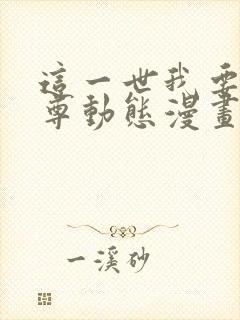 這一世我要
尊動態漫畫
一溪砂